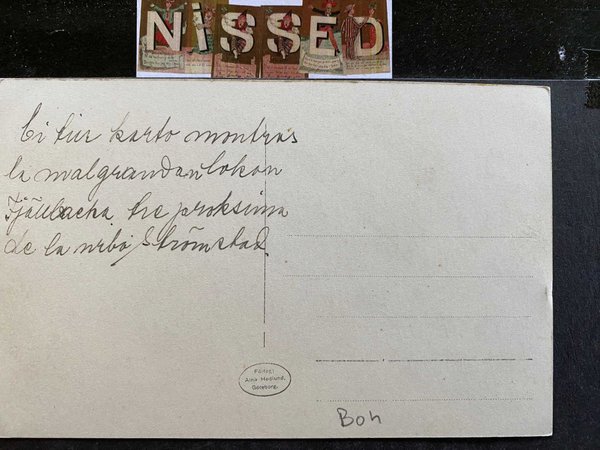 NiSSED
Ĉi tiu karto montras
la malgrandan lokon
Fjällbacka tre proksima
de la urbo Strömstad.
Förlag:
Hedlund,
Göteborg.
Boh